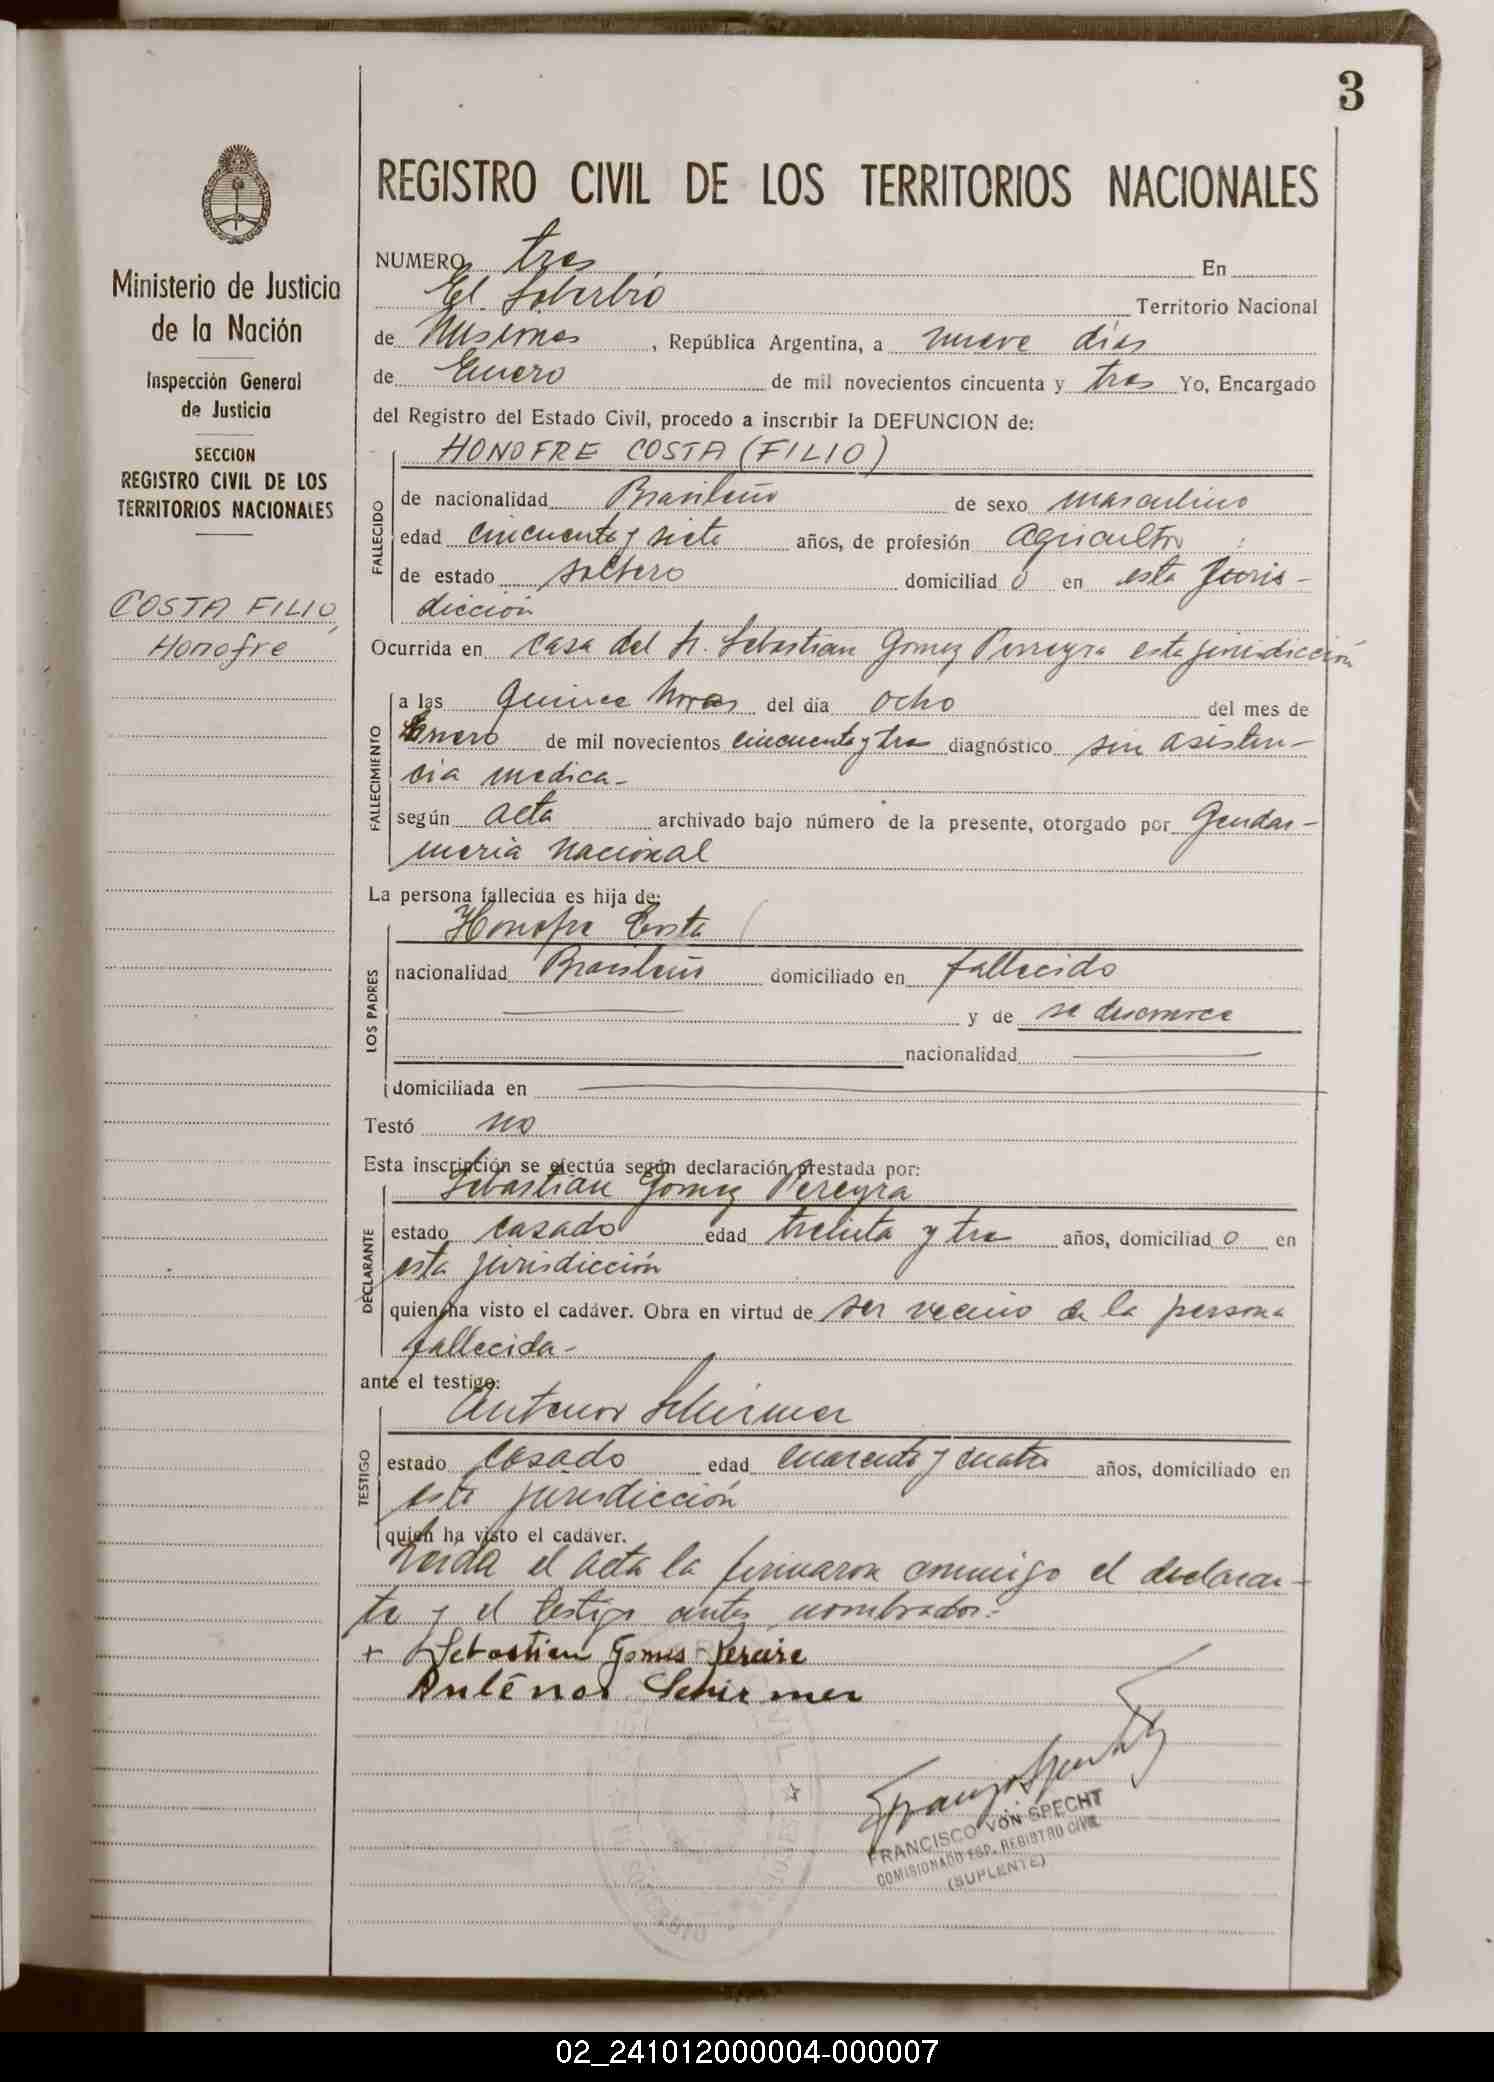 3
Ministerio de Justicia
de la Nación
Inspección General
de Justicia
SECCION
REGISTRO CIVIL DE LOS
TERRITORIOS NACIONALES
COSTA FILIO,
Honofre
REGISTRO CIVIL DE LOS TERRITORIOS NACIONALES
NUMERO tres En
El Soberbio Territorio Nacional
de Misiones, República Argentina, a nueve días
de Enero de mil novecientos cincuenta y tres Yo, Encargado
del Registro del Estado Civil, procedo a inscribir la DEFUNCION de:
HONOFRE COSTA (FILIO)
FALLECIDO
de nacionalidad Brasileño de sexo masculino
edad cincuenta y siete años, de profesión agricultor
de estado soltero domiciliad o en esta Juris-
dicción
Ocurrida en casa del Sr. Sebastian Gomez Perreyra esta jurisdicción
FALLECIMIENTO
a las quince horas del día ocho del mes de
Enero de mil novecientos cincuenta y tres diagnóstico sin asisten-
cia medica-
según acta archivado bajo número de la presente, otorgado por Gendar-
meria Nacional
La persona fallecida es hija de:
LOS PADRES
Honofre Costa
nacionalidad Brasileño domiciliado en fallecido
y de se desconoce
nacionalidad
domiciliada en
Testó no
Esta inscripción se efectúa según declaración prestada por:
DECLARANTE
Sebastian Gomez Pereyra
estado casado edad treinta y tres años, domiciliad o en
esta jurisdicción
quien ha visto el cadáver. Obra en virtud de ser vecino de la persona
fallecida-
ante el testigo:
TESTIGO
Antenor Schirmer
estado casado edad cuarenta y cuatro años, domiciliado en
esta jurisdicción
quien ha visto el cadáver.
Leida el acta la firmaron conmigo el declaran-
te y el testigo antes nombrados.-
+ Sebastien Gomes Pereire
Anténor Schirmer
FRANCISCO VON SPECHT
COMISIONADO ESP. REGISTRO CIVIL
(SUPLENTE)
02_241012000004-000007